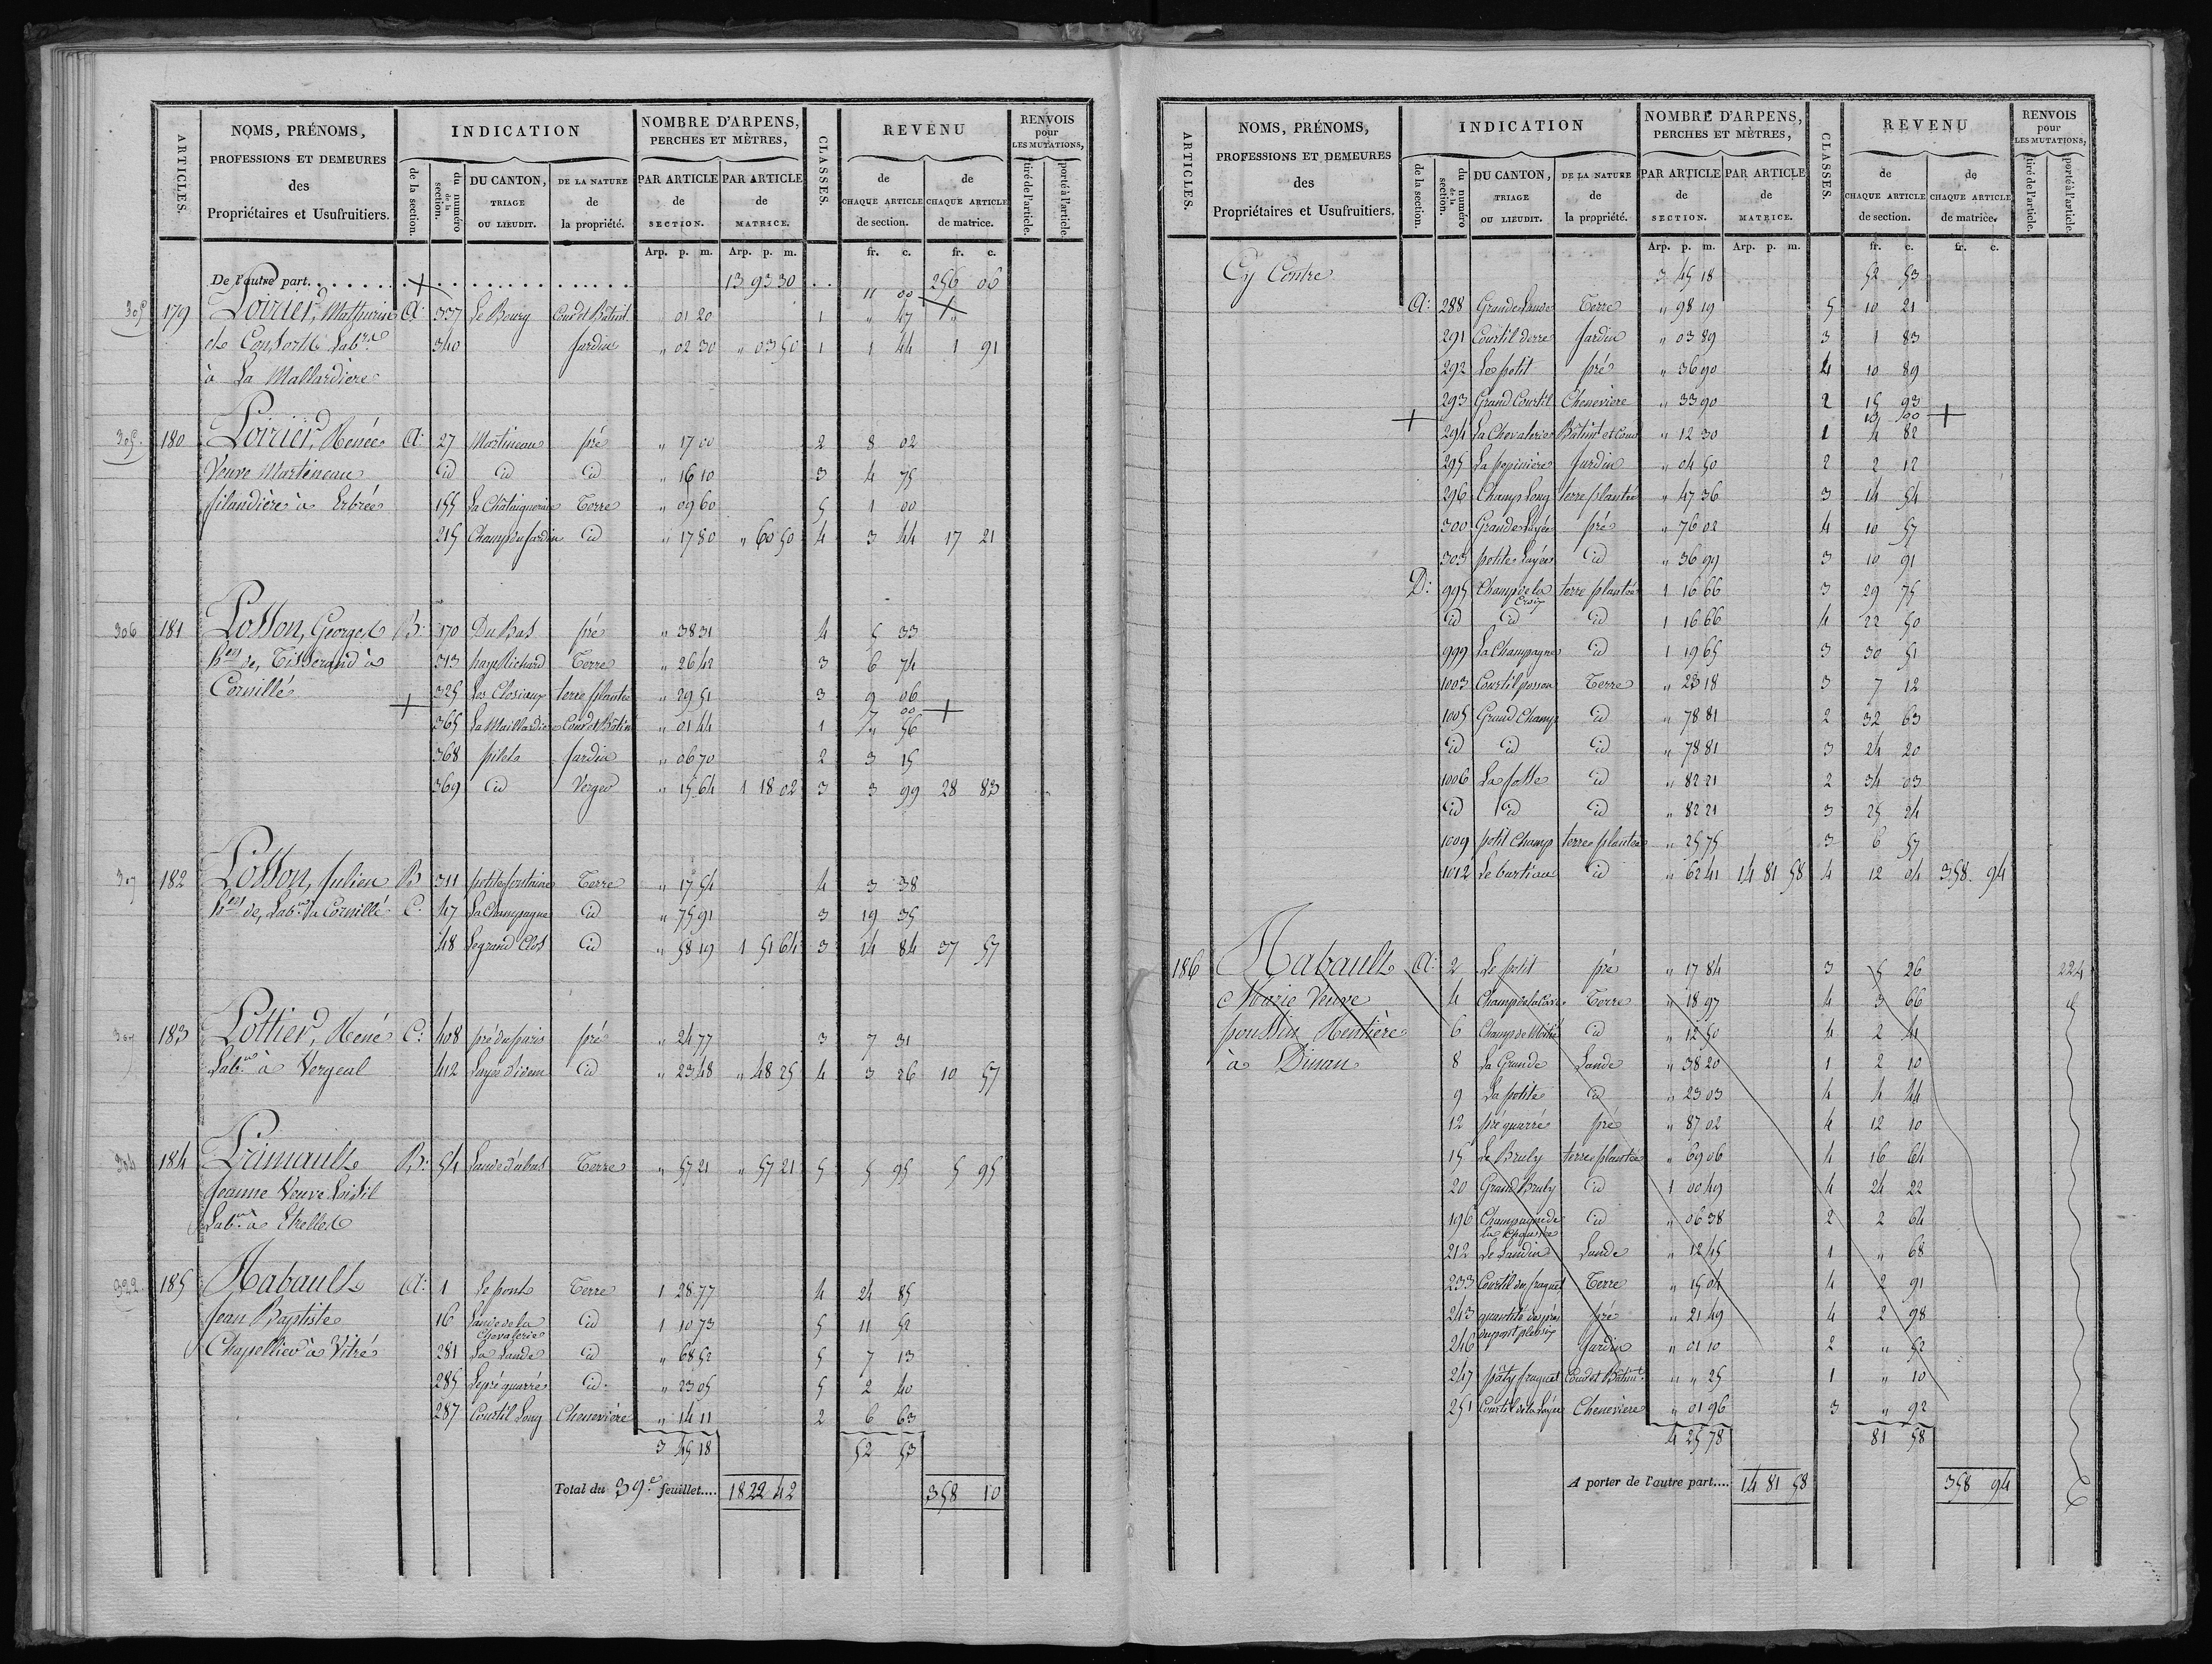 ARTICLES.
NOMS, PRÉNOMS,
PROFESSIONS ET DEMEURES
des
Propriétaires et Usufruitiers.
INDICATION
de la section.
du numéro de la section.
DU CANTON, TRIAGE OU LIEUDIT.
DE LA NATURE de la propriété.
NOMBRE D'ARPENS,
PERCHES ET MÈTRES,
PAR ARTICLE de SECTION.
PAR ARTICLE de MATRICE.
CLASSES.
REVENU
de CHAQUE ARTICLE de section.
de CHAQUE ARTICLE de matrice.
RENVOIS pour LES MUTATIONS,
tiré de l'article.
porté à l'article.
Arp. p. m. Arp. p. m. fr. c. fr. c.
De l'autre part 13 93 30 256 06
11 00
305 179 Poirier, Mathurin A: 337 Le Bourg Cour et Bâtint. " 01 20 1 " 47 "
& Consorts Labrs 340 Jardin " 02 30 " 03 50 1 1 44 1 91
à La Mallardiere
305. 180 Poirier, Renée A: 27 Martineau pré " 17 00 2 8 02
Veuve Martineau id id id " 16 10 3 4 75
filandière à Erbrée 155 La Châtaigneraie Terre " 09 60 5 1 00
215 Champ du Jardin id " 17 80 " 60 50 4 3 44 17 21
306 181 Posson, Georges B: 170 Du Bas pré " 38 31 4 5 33
hers de, Tisserand à 313 haye Richard Terre " 26 42 3 6 74
Cornillé 325 Les Closiaux terre plantée " 29 51 3 9 06
7 00
365 La Maillardiere Cour et Bâtin " 01 44 1 " 56
368 pilets Jardin " 06 70 2 3 15
369 id Verger " 15 64 1 18 02 3 3 99 28 83
307 182 Posson, Julien B 311 petite fontaine Terre " 17 54 4 3 38
hers de, Labr. à Cornillé C: 47 La Champagne id " 75 91 3 19 35
48 Le grand Clos id " 58 19 1 51 64 3 14 84 37 57
307 183 Pottier, René C: 408 pré du paris pré " 24 77 3 7 31
Labr. à Vergeal 412 Layée d'idem id " 23 48 " 48 25 4 3 26 10 57
304 184 Primault B: 54 Lande d'abas Terre " 57 21 " 57 21 5 5 95 5 95
Jeanne Veuve Loisil
Labre à Etrelles
322. 185 Rabault A: 1 Le pont Terre 1 28 77 4 24 85
Jean Baptiste 16 Lande de la Chevalerie id 1 10 73 5 11 52
Chapellier à Vitré 281 La Lande id " 68 52 5 7 13
285 Le pré quarré id " 23 05 5 2 40
287 Courtil Long Chenevière " 14 11 2 6 63
3 45 18 52 53
Total du 39e feuillet.... 18 22 42 358 10
ARTICLES.
NOMS, PRÉNOMS,
PROFESSIONS ET DEMEURES
des
Propriétaires et Usufruitiers.
INDICATION
de la section.
du numéro de la section.
DU CANTON, TRIAGE OU LIEUDIT.
DE LA NATURE de la propriété.
NOMBRE D'ARPENS,
PERCHES ET MÈTRES,
PAR ARTICLE de SECTION.
PAR ARTICLE de MATRICE.
CLASSES.
REVENU
de CHAQUE ARTICLE de section.
de CHAQUE ARTICLE de matrice.
RENVOIS pour LES MUTATIONS,
tiré de l'article.
porté à l'article.
Arp. p. m. Arp. p. m. fr. c. fr. c.
Cy Contre 3 45 18 52 53
A: 288 Grande Lande Terre " 98 19 5 10 21
291 Courtil derre Jardin " 03 89 3 1 83
292 Le petit pré " 36 90 4 10 89
293 Grand Courtil Cheneviere " 33 90 2 15 93
13 00
294 La Chevalerie Bâtint et Cour " 12 30 1 4 82
295 La pepiniere Jardin " 04 50 2 2 12
296 Champ Long terre plantée " 47 36 3 14 54
300 Grande Layée pré " 76 02 4 10 57
303 petite Layée id " 36 99 3 10 91
D: 995 Champ de la Croix terre plantée 1 16 66 3 29 75
id id id 1 16 66 4 22 50
999 La Champagne id 1 19 65 3 30 51
1003 Courtil posson Terre " 23 18 3 7 12
1005 Grand Champ id " 78 81 2 32 63
id id id " 78 81 3 24 20
1006 La fosse id " 82 21 2 34 03
id id id " 82 21 3 25 24
1009 petit Champ terre plantée " 25 75 3 6 57
1012 Le bustiau id " 62 41 14 81 58 4 12 04 358 94
186 Rabault A: 2 Le petit pré " 17 84 3 5 26 224
Marie Veuve 4 Champ de la Terre " 18 97 4 3 66
poussin Rentière 6 Champ de Moitié id " 12 50 4 2 41
à Dinan 8 La Grande Lande " 38 20 1 2 10
9 La petite id " 23 03 4 4 44
12 pré quarré pré " 87 02 4 12 10
15 Le Bruly terre plantée " 69 06 4 16 64
20 Grand Bruly id 1 00 49 4 24 22
196 Champagne de la id " 06 38 2 2 64
212 Le Landin Lande " 12 45 1 " 68
233 Courtil du fraguet Terre " 15 04 4 2 91
243 quantité des prés du pont plessix pré " 21 49 4 2 98
246 Jardin " 01 10 2 " 52
247 pâty fraguet Cour et Bâtint " " 25 1 " 10
251 Courtil de la Layée Cheneviere " 01 96 3 " 92
4 25 78 81 58
A porter de l'autre part.... 14 81 58 358 94